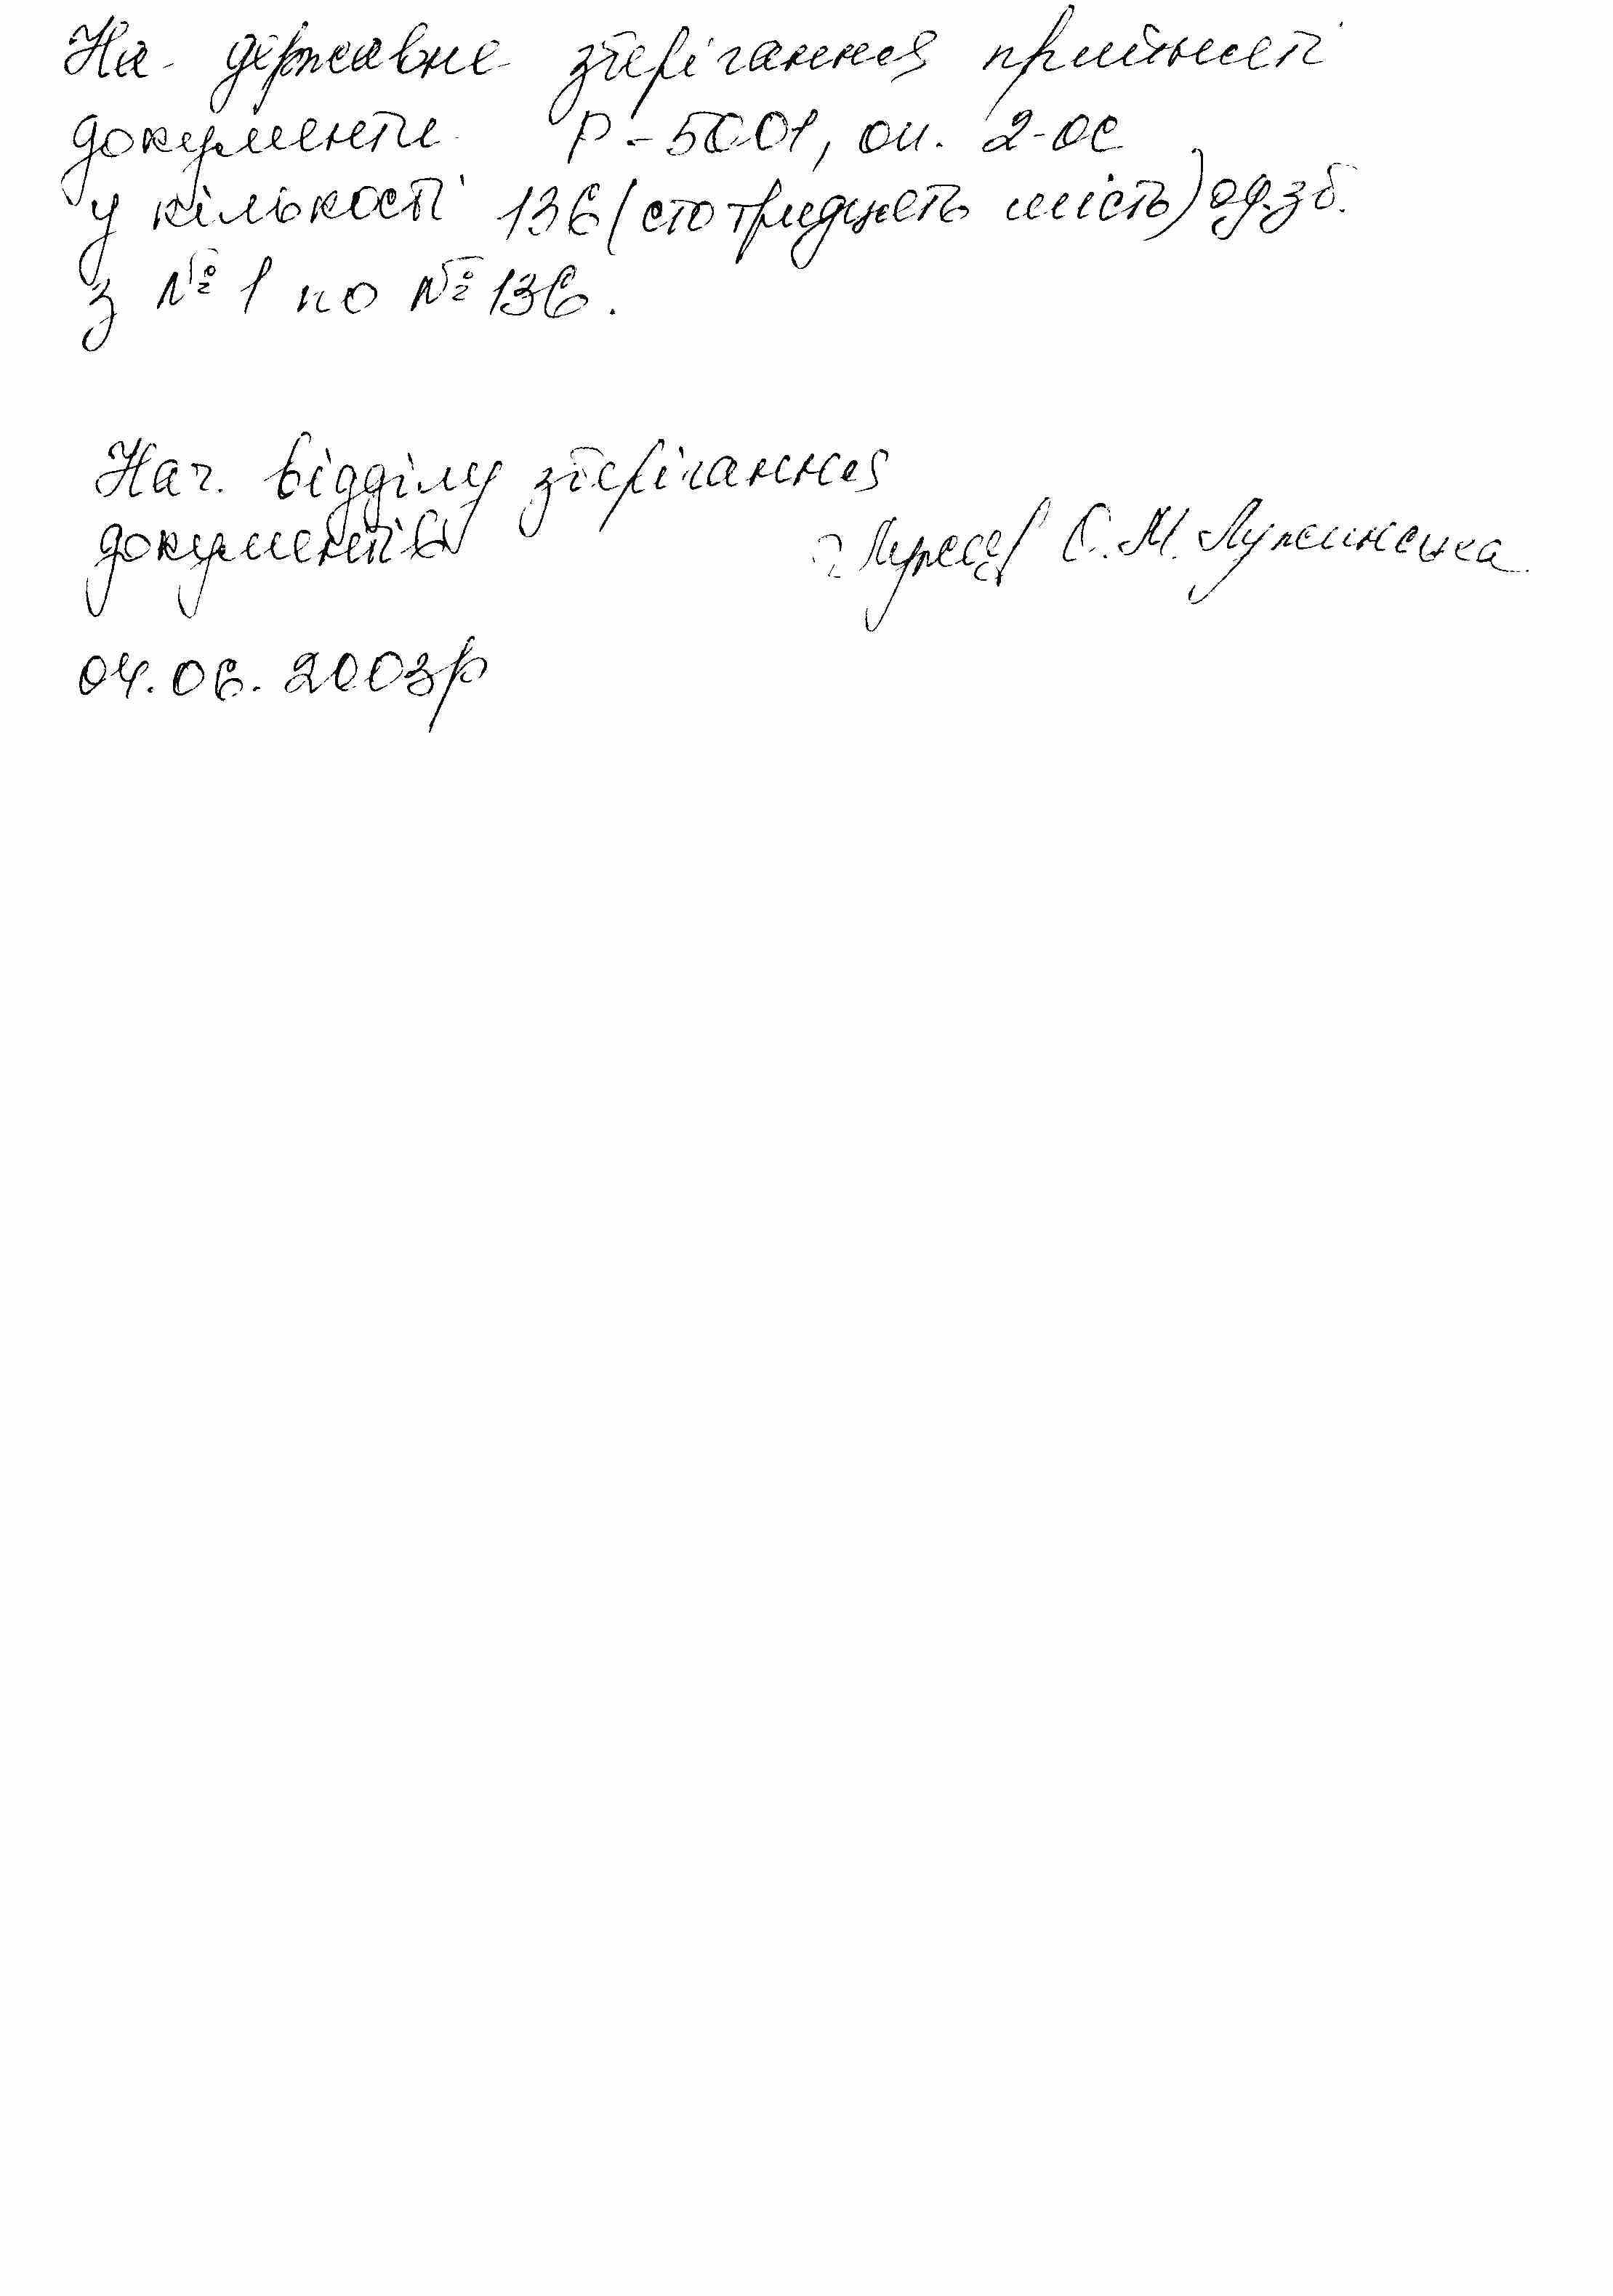 На державне зберігання прийняті
документи Р-5001, оп. 2-ос
у кількості 136 (сто тридцять шість) од.зб.
з № 1 по № 136.
Нач. відділу зберігання
документів С.М. Лужинська
04.06.2003р